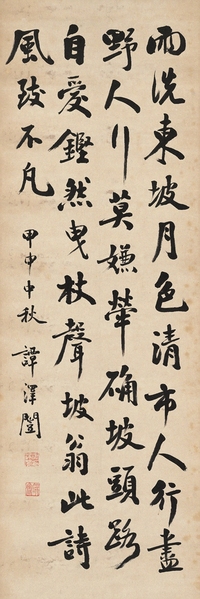 雨洗東坡月色清市人行盡
野人行莫嫌犖确坡頭路
自愛鏗然曳杖聲坡翁此詩
風致不凡
甲申中秋 譚澤闓